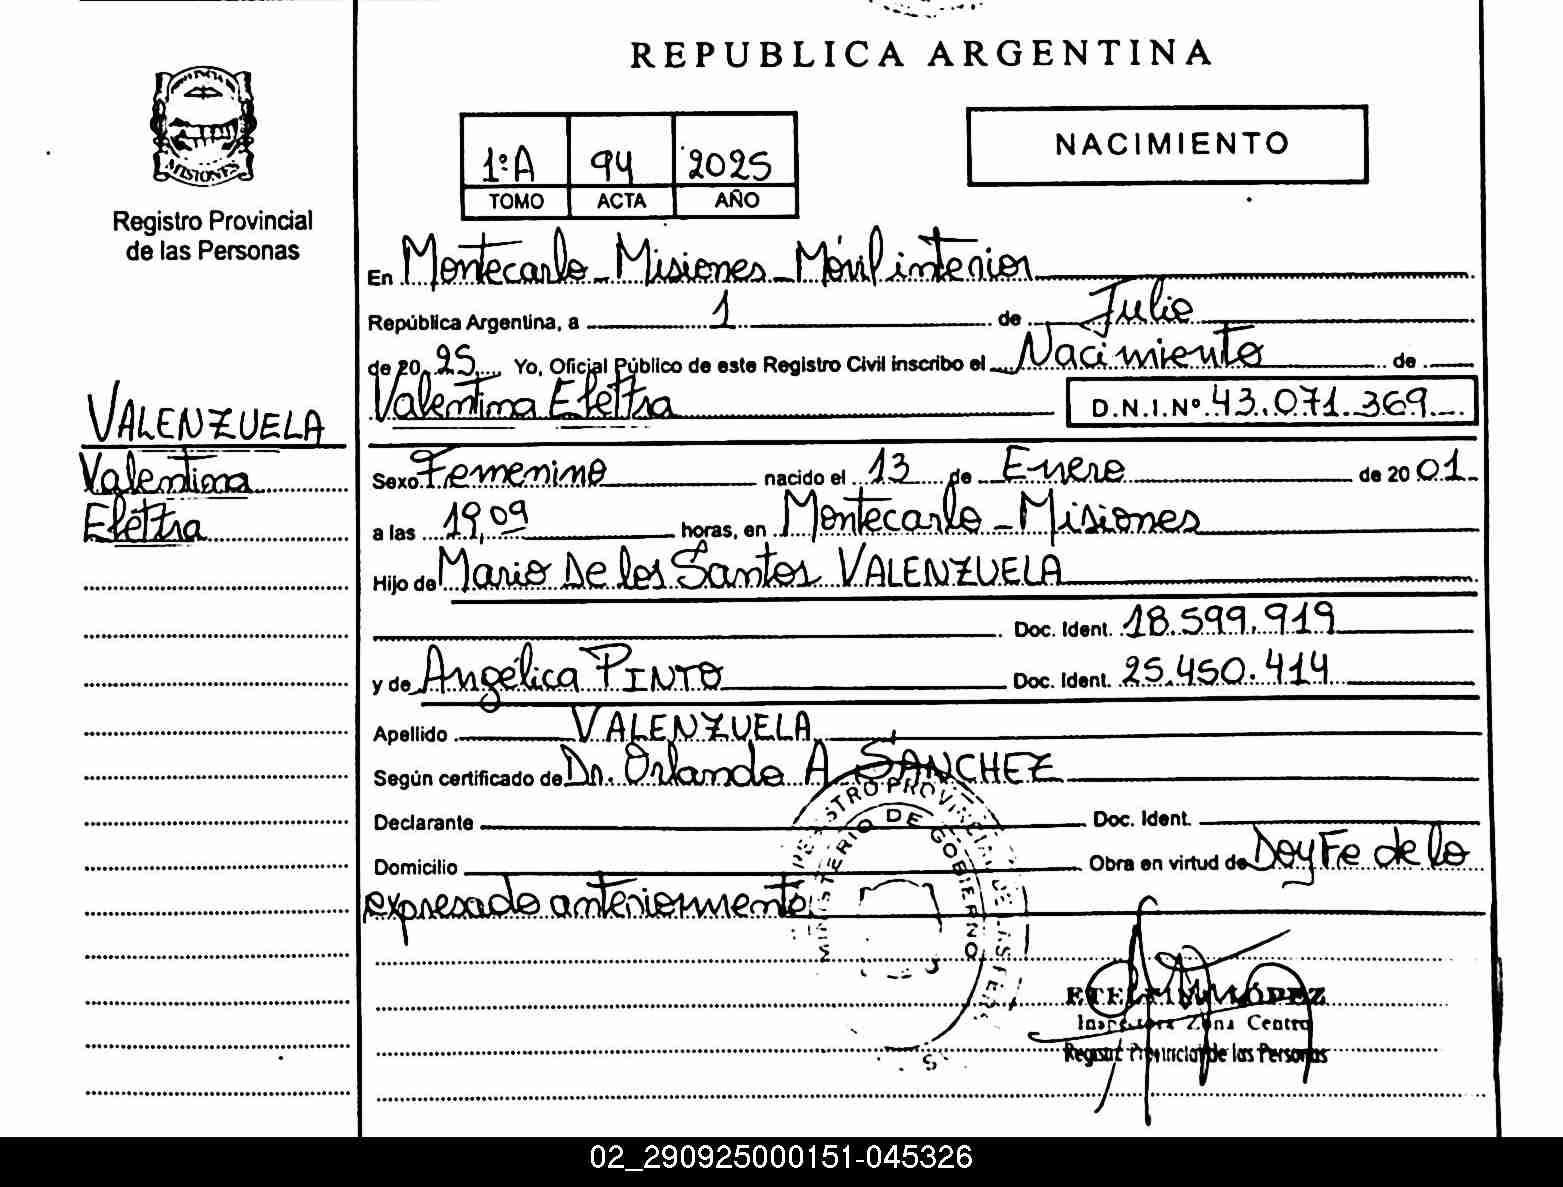 REPUBLICA ARGENTINA
MISIONES
Registro Provincial
de las Personas
1:A 94 2025
TOMO ACTA AÑO
NACIMIENTO
En Montecarlo - Misiones - Móvil interior
República Argentina, a 1 de Julio
de 20 25 Yo, Oficial Público de este Registro Civil inscribo el Nacimiento de
Valentina Elettra D.N.I.Nº 43.071.369
VALENZUELA
Valentina
Elettra
Sexo Femenino nacido el 13 de Enero de 20 01
a las 19,09 horas, en Montecarlo - Misiones
Hijo de Mario De los Santos VALENZUELA
Doc. Ident. 18.599.919
y de Angélica PINTO Doc. Ident. 25.450.414
Apellido VALENZUELA
Según certificado de Dr. Orlando A. SANCHEZ
Declarante Doc. Ident.
Domicilio Obra en virtud de Doy Fe de lo
expresado anteriormente
REGISTRO PROVINCIAL DE LAS PERS
MINISTERIO DE GOBIERNO
LÓPEZ
Inspectora Zona Centro
Registro Provincial de las Personas
02_290925000151-045326